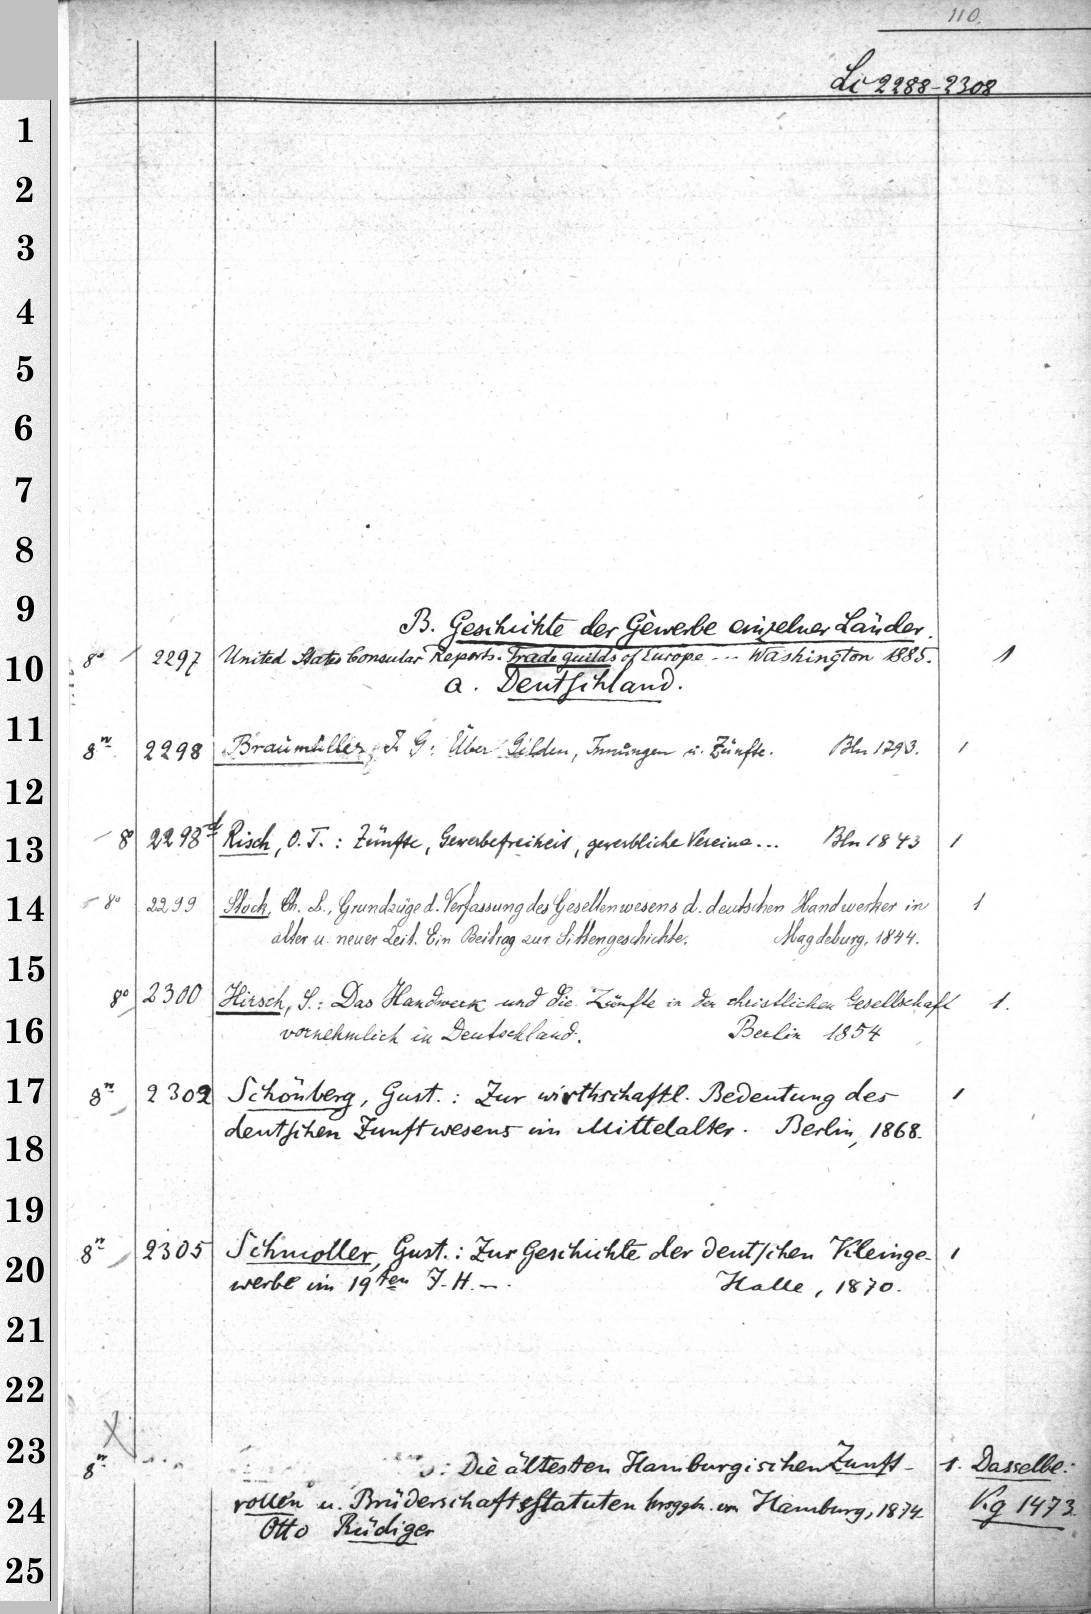 110.
Lc 2288-2308
1
2
3
4
5
6
7
8
9
B. Geschichte der Gewerbe einzelner Länder.
10 8° 2297 United States Consular Reports. Trade guilds of Europe ... Washington 1885. 1
a. Deutschland.
11
8° 2298 Braumüller, J. G: Über Gilden, Innungen u. Zünfte. Bln 1793. 1
12
13 8° 2298d Risch, O. T. : Zünfte, Gewerbefreiheit, gewerbliche Vereine... Bln 1843 1
14 8° 2299 Stock, Ch. L., Grundzüge d. Verfassung des Gesellenwesens d. deutschen Handwerker in 1
alter u. neuer Zeit. Ein Beitrag zur Sittengeschichte. Magdeburg, 1844.
15
8° 2300 Hirsch, S.: Das Handwerk und die Zünfte in der christlichen Gesellschaft 1.
16 vornehmlich in Deutschland. Berlin 1854
17 8° 2302 Schönberg, Gust. : Zur wirthschaftl. Bedeutung des 1
18 deutschen Zunftwesens im Mittelalter. Berlin, 1868.
19
20 8° 2305 Schmoller, Gust.: Zur Geschichte der deutschen Kleinge- 1
werbe im 19ten J. H. —. Halle, 1870.
21
22
23 8° : Die ältesten Hamburgischen Zunft- 1. Dasselbe:
24 rollen u. Brüderschaftsstatuten Hamburg, 1874. Kg 1473.
Otto Rüdiger
25